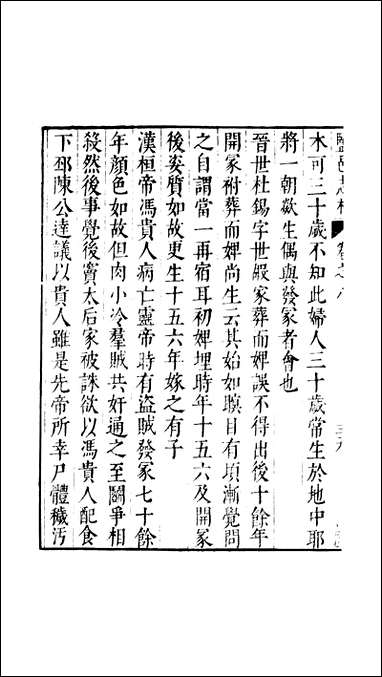 木可三十歲不知此婦人三十歲常生於地中耶
將一朝歘生偶與發冢者會也
晉世杜錫字世嘏家葬而婢誤不得出後十餘年
開冢祔葬而婢尚生云其始如瞑目有頃漸覺問
之自謂當一再宿耳初婢埋時年十五六及開冢
後姿質如故更生十五六年嫁之有子
漢桓帝馮貴人病亡靈帝時有盜賊發冢七十餘
年顏色如故但肉小冷羣賊共奸通之至鬬爭相
殺然後事覺後竇太后家被誅欲以馮貴人配食
下邳陳公達議以貴人雖是先帝所幸尸體穢汚